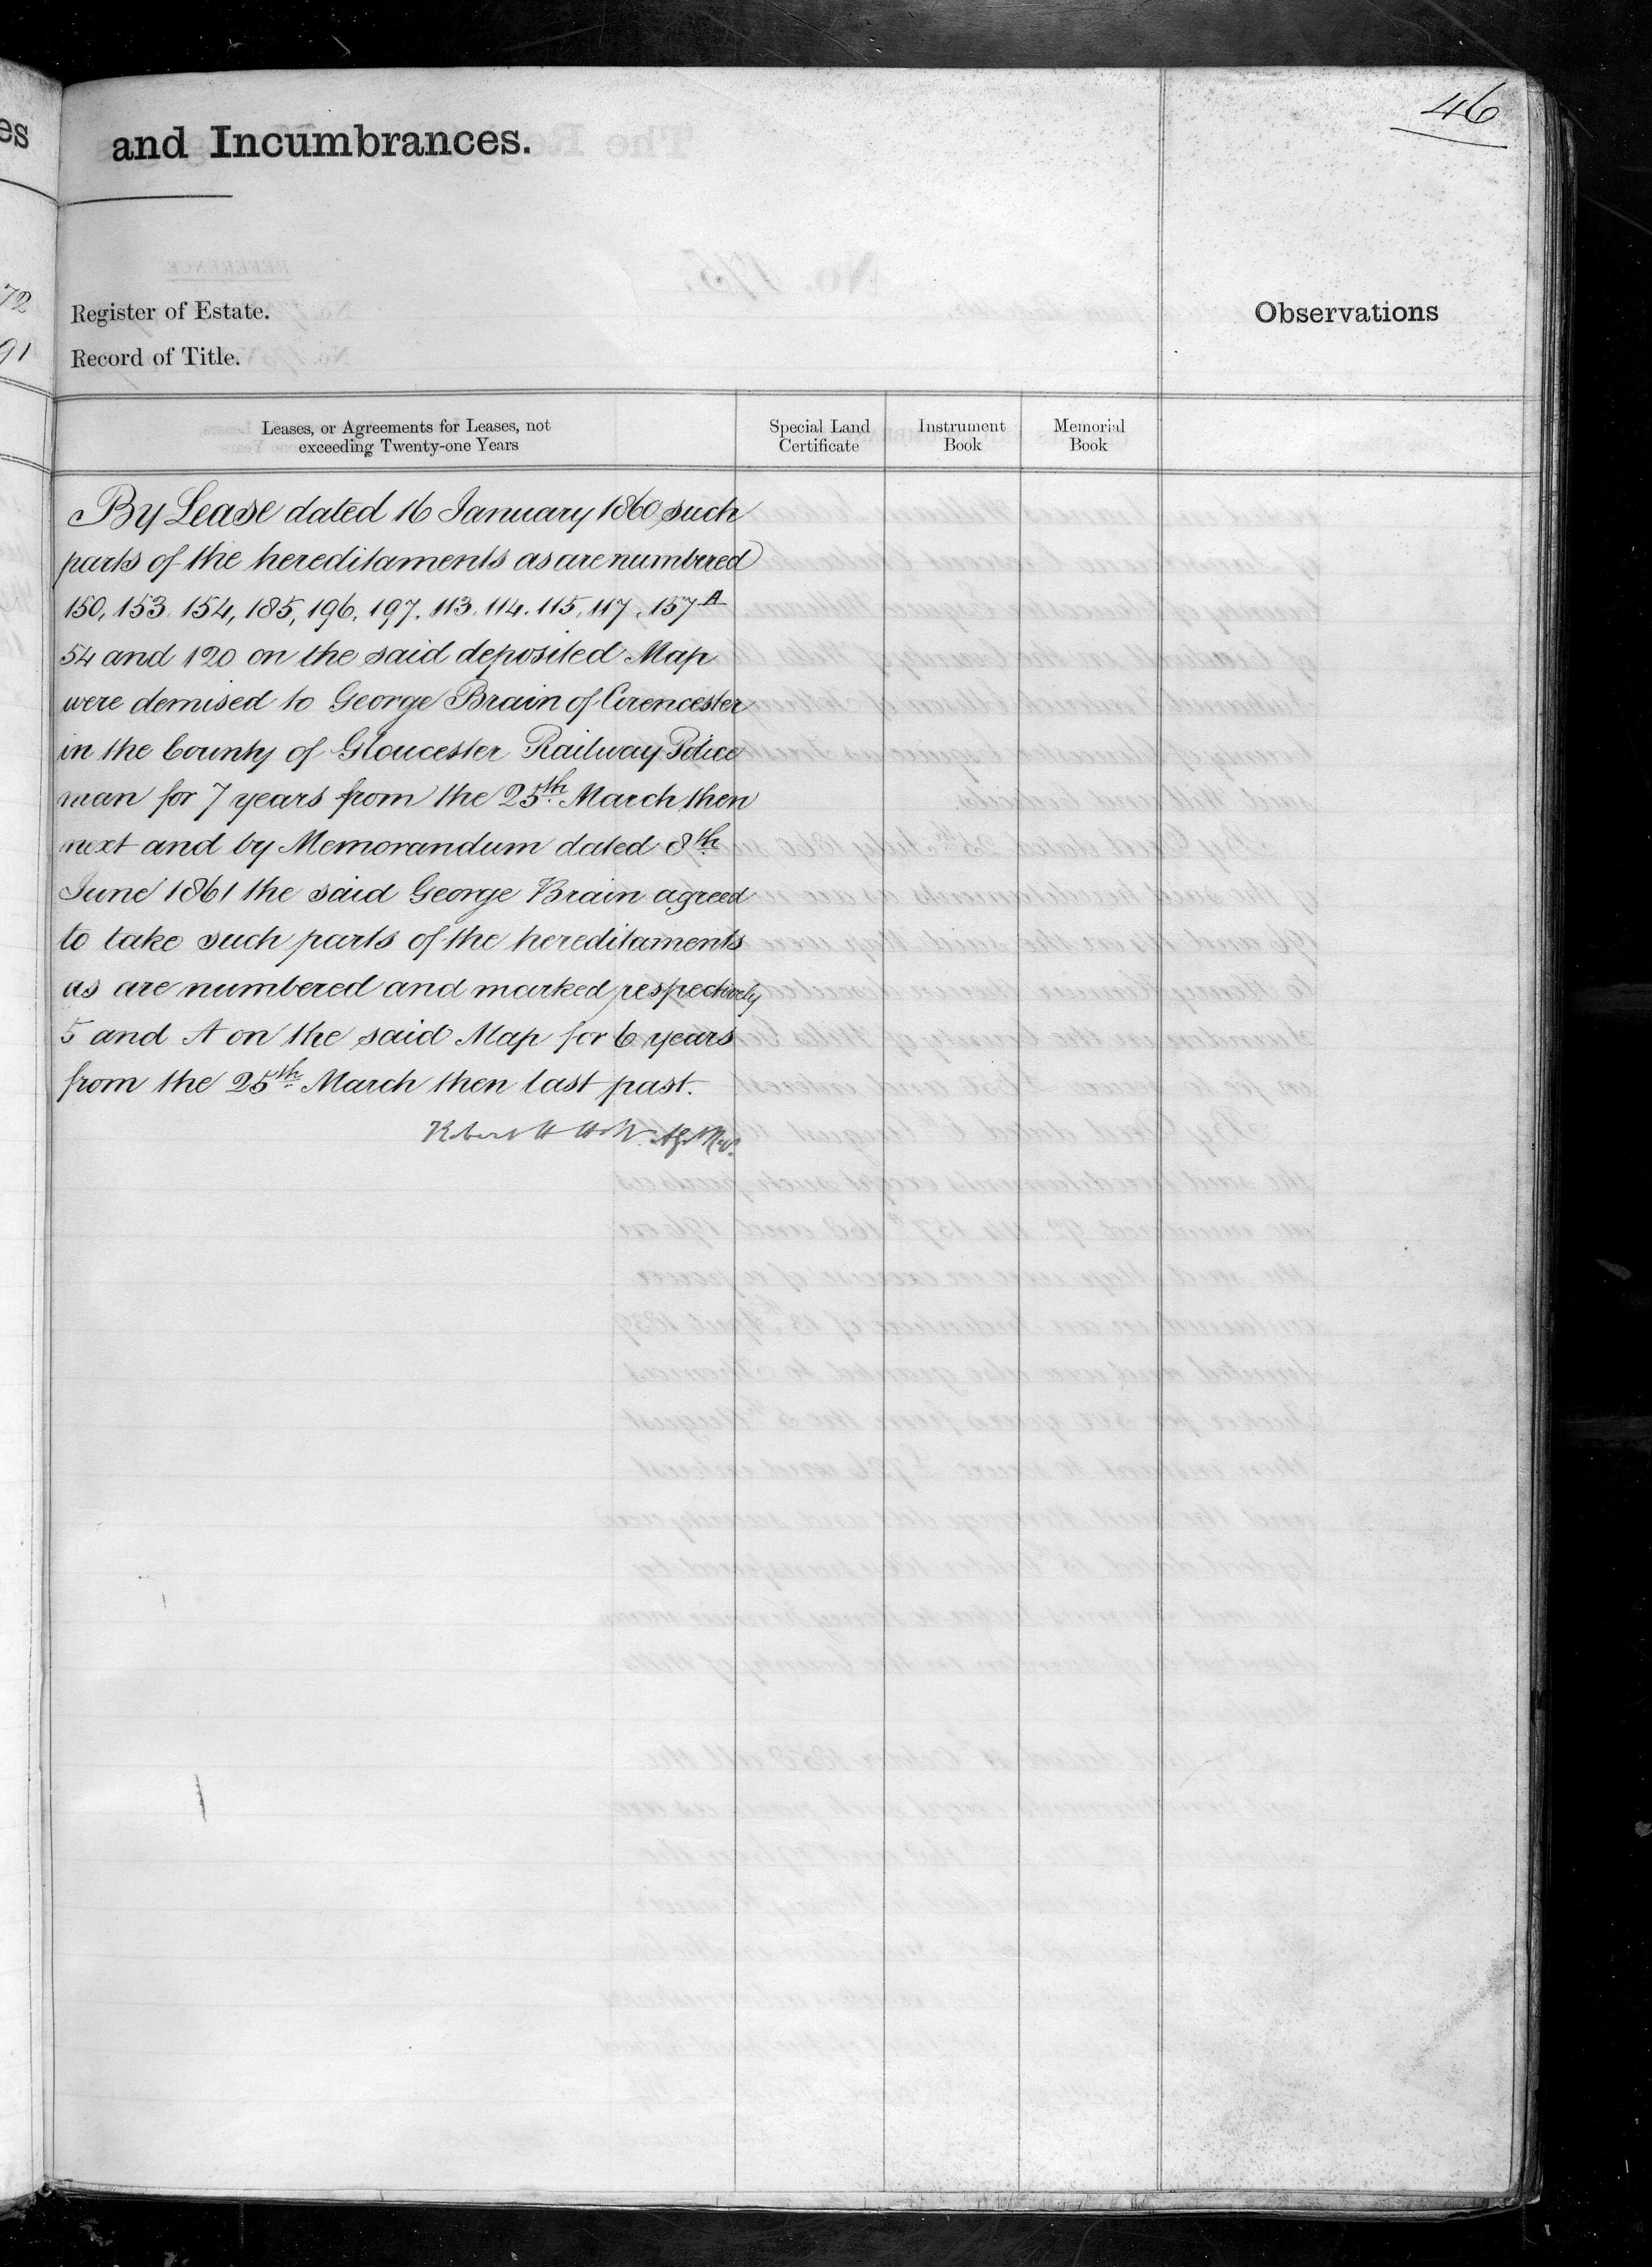 46
es
and Incumbrances.
72
Register of Estate.
Observations
91
Record of Title.
Leases, or Agreements for Leases, not
exceeding Twenty-one Years
Special Land
Certificate
Instrument
Book
Memorial
Book
By Lease dated 16 January 1860 such
parts of the hereditaments as are numbered
150, 153. 154, 185, 196, 197. 113. 114. 115, 117, 157 A
54 and 120 on the said deposited Map
were demised to George Brain of Cirencester
in the County of Gloucester Railway Police
man for 7 years from the 25th March then
next and by Memorandum dated 8th
June 1861 the said George Brain agreed
to take such parts of the hereditaments
as are numbered and marked respectively
5 and A on the said Map for 6 years
from the 25th March then last past.
Robert H Holt